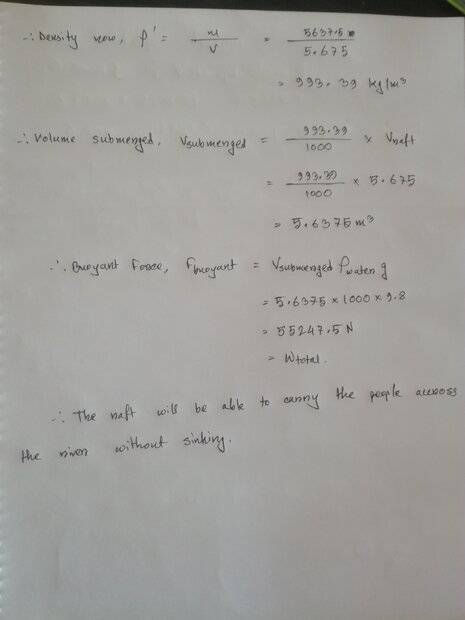 ∴ Density now, ρ' = m/V = 5637.5/5.675
= 993.39 kg/m³
∴ Volume submerged, Vsubmerged = 993.39/1000 × Vraft
= 993.39/1000 × 5.675
= 5.6375 m³
∴ Buoyant Force, Fbuoyant = Vsubmerged ρwater g
= 5.6375 × 1000 × 9.8
= 55247.5 N
= Wtotal.
∴ The raft will be able to carry the people across
the river without sinking.